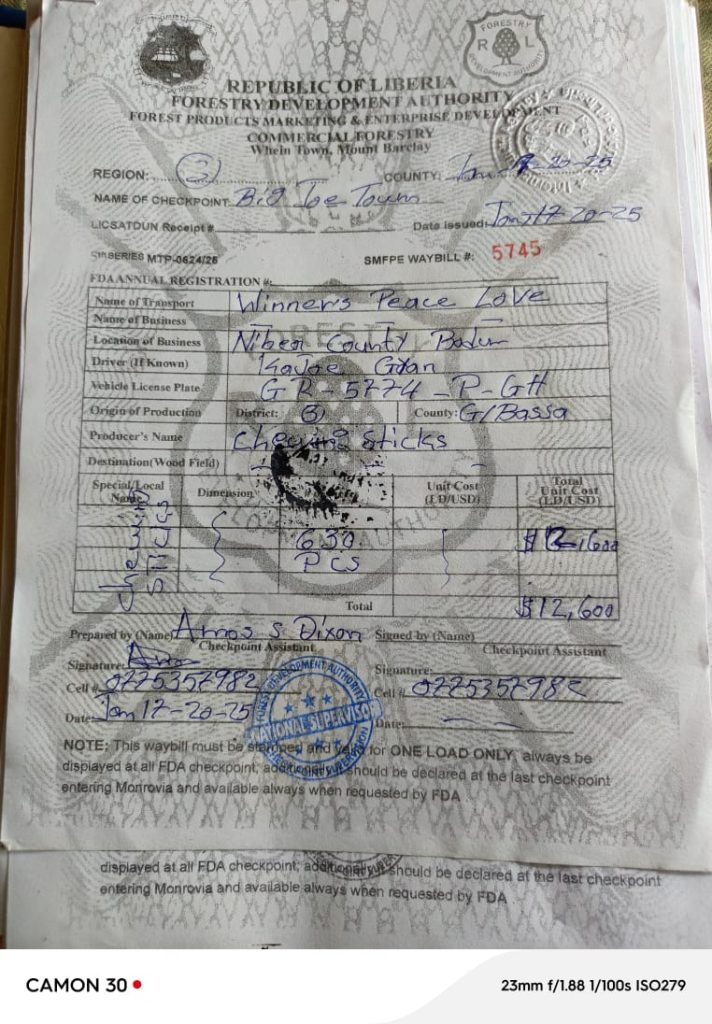 FORESTRY
R L
DEVELOPMENT AUTHORITY
REPUBLIC OF LIBERIA
FORESTRY DEVELOPMENT AUTHORITY
FOREST PRODUCTS MARKETING & ENTERPRISE DEVELOPMENT
COMMERCIAL FORESTRY
Whein Town, Mount Barclay
REGION: 3 COUNTY: 20-25
NAME OF CHECKPOINT: Big Joe Town
LICSATDUN Receipt # Date issued: Jan 17-20-25
SERIES MTP-0624/25 SMFPE WAYBILL #: 5745
FDA ANNUAL REGISTRATION #:
Name of Transport Winners Peace Love
Name of Business
Location of Business County
Driver (If Known)
Vehicle License Plate GR-5774-P-GH
Origin of Production District: 3 County: G/Bassa
Producer's Name Chewing Sticks
Destination(Wood Field)
Special/Local Name Dimension Unit Cost (LD/USD) Total Unit Cost (LD/USD)
Chewing Sticks 630 Pcs $12,600
Total $12,600
Prepared by (Name) Amos S. Dixon Signed by (Name)
Checkpoint Assistant Checkpoint Assistant
Signature: Signature:
Cell # 0775357982 Cell # 0775357982
Date: Jan 17-20-25 Date:
FOREST DEVELOPMENT AUTHORITY
NATIONAL SUPERVISOR
NOTE: This waybill must be stamped and valid for ONE LOAD ONLY, always be
displayed at all FDA checkpoint, should be declared at the last checkpoint
entering Monrovia and available always when requested by FDA
displayed at all FDA checkpoint, should be declared at the last checkpoint
entering Monrovia and available always when requested by FDA
CAMON 30
23mm f/1.88 1/100s ISO279